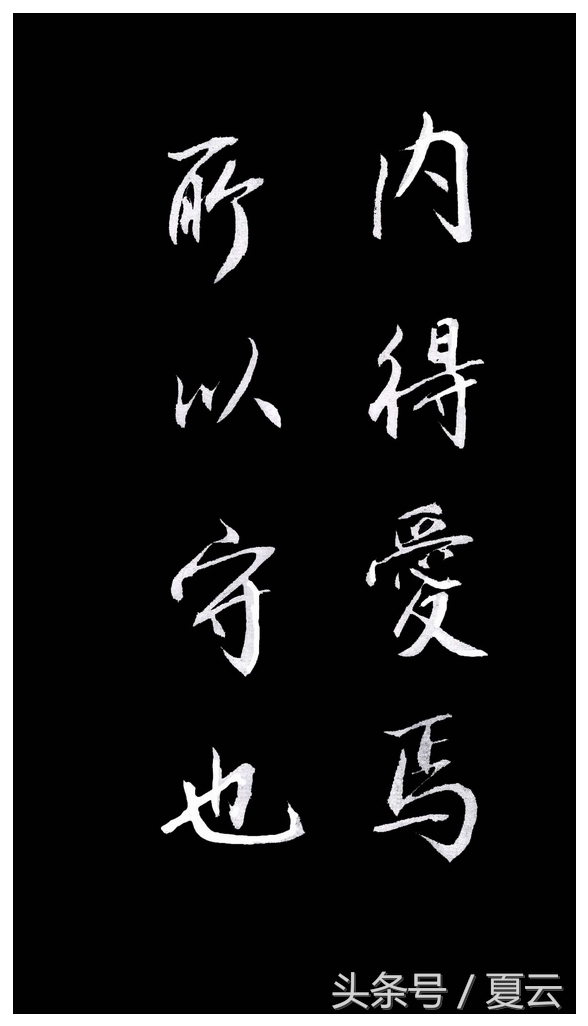 内得愛焉
所以守也
头条号 / 夏云